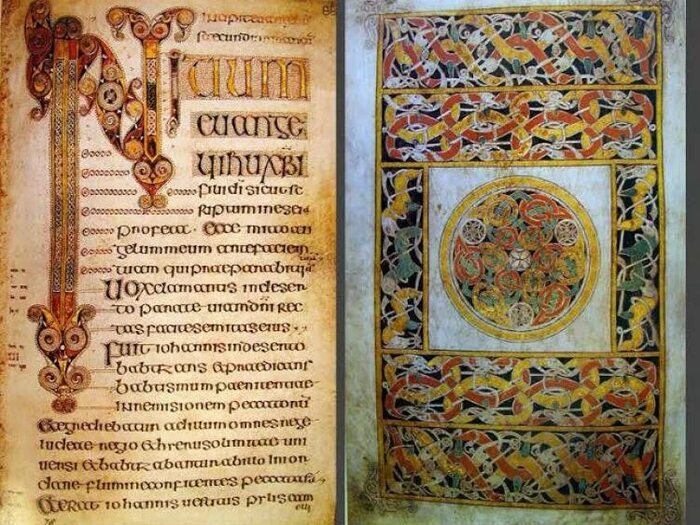 INITIUM
EUANGE
LII IHU XPI
filii di sicut sc
riptum in esei
profeta · Ecce mitto an
gelum meum ante faciem
tuam qui praeparabit
UOX clamantis in deser
to parate uiam dni rec
tas facite semitas eius
Fuit iohannis in deserto
babtizans et praedicans
babtismum paenitentiae
in remisionem peccatorum
omnes
hierusolimitae uni
uersi et babtizabantur ab illo in ior
dane flumine confitentes peccata
Et erat iohannis uestitus pilis cam